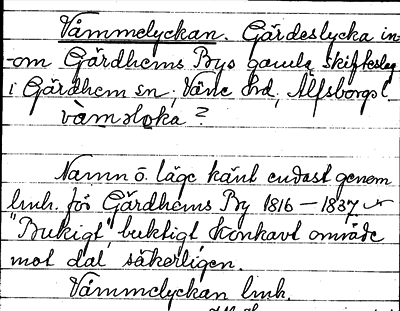 Våmmelyckan. Gärdeslycka in-
om Gärdhems Bys gamla skifteslag
i Gärdhem sn, Väne hd, Älfsborgs l.
våmsloka?
Namn o. läge känt endast genom
lmh. för Gärdhems By 1816 – 1837
"Bukigt", buktigt konkavt område
mot dal säkerligen.
Våmmelyckan lmh.